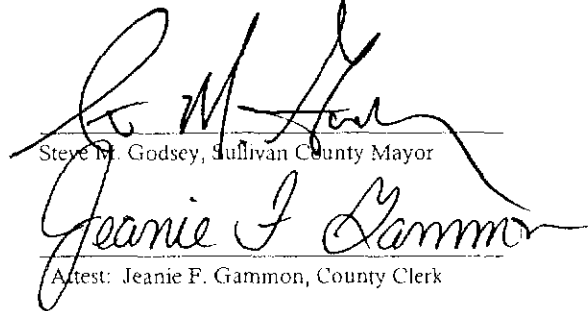 St M. Godsey
Steve M. Godsey, Sullivan County Mayor
Jeanie F Gammon
Attest: Jeanie F. Gammon, County Clerk